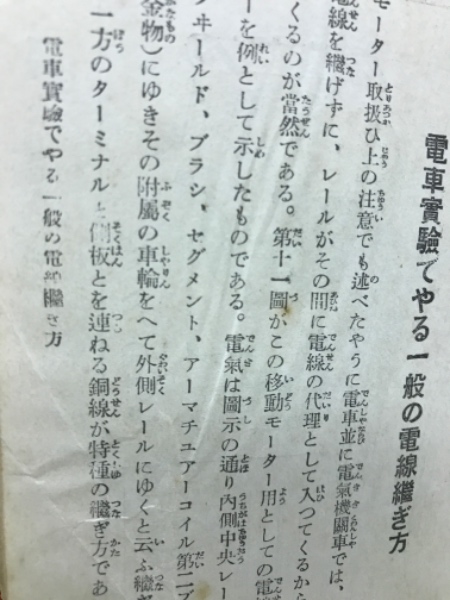 電車實驗でやる一般の電線繼ぎ方
モーター取扱ひ上の注意でも述べたやうに電車並に電氣機關車では、
電線を繼げずに、レールがその間に電線の代理として入つてくるから
くるのが當然である。第十一圖がこの移動モーター用としての電
ーを例として示したものである。電氣は圖示の通り內側中央レー
ヰールド、ブラシ、セグメント、アーマチュアーコイル第二ブ
金物)にゆきその附屬の車輪をへて外側レールにゆくと云ふ繼
一方のターミナルと側板とを連ねる銅線が特種の繼ぎ方であ
電車實驗でやる一般の電線繼ぎ方